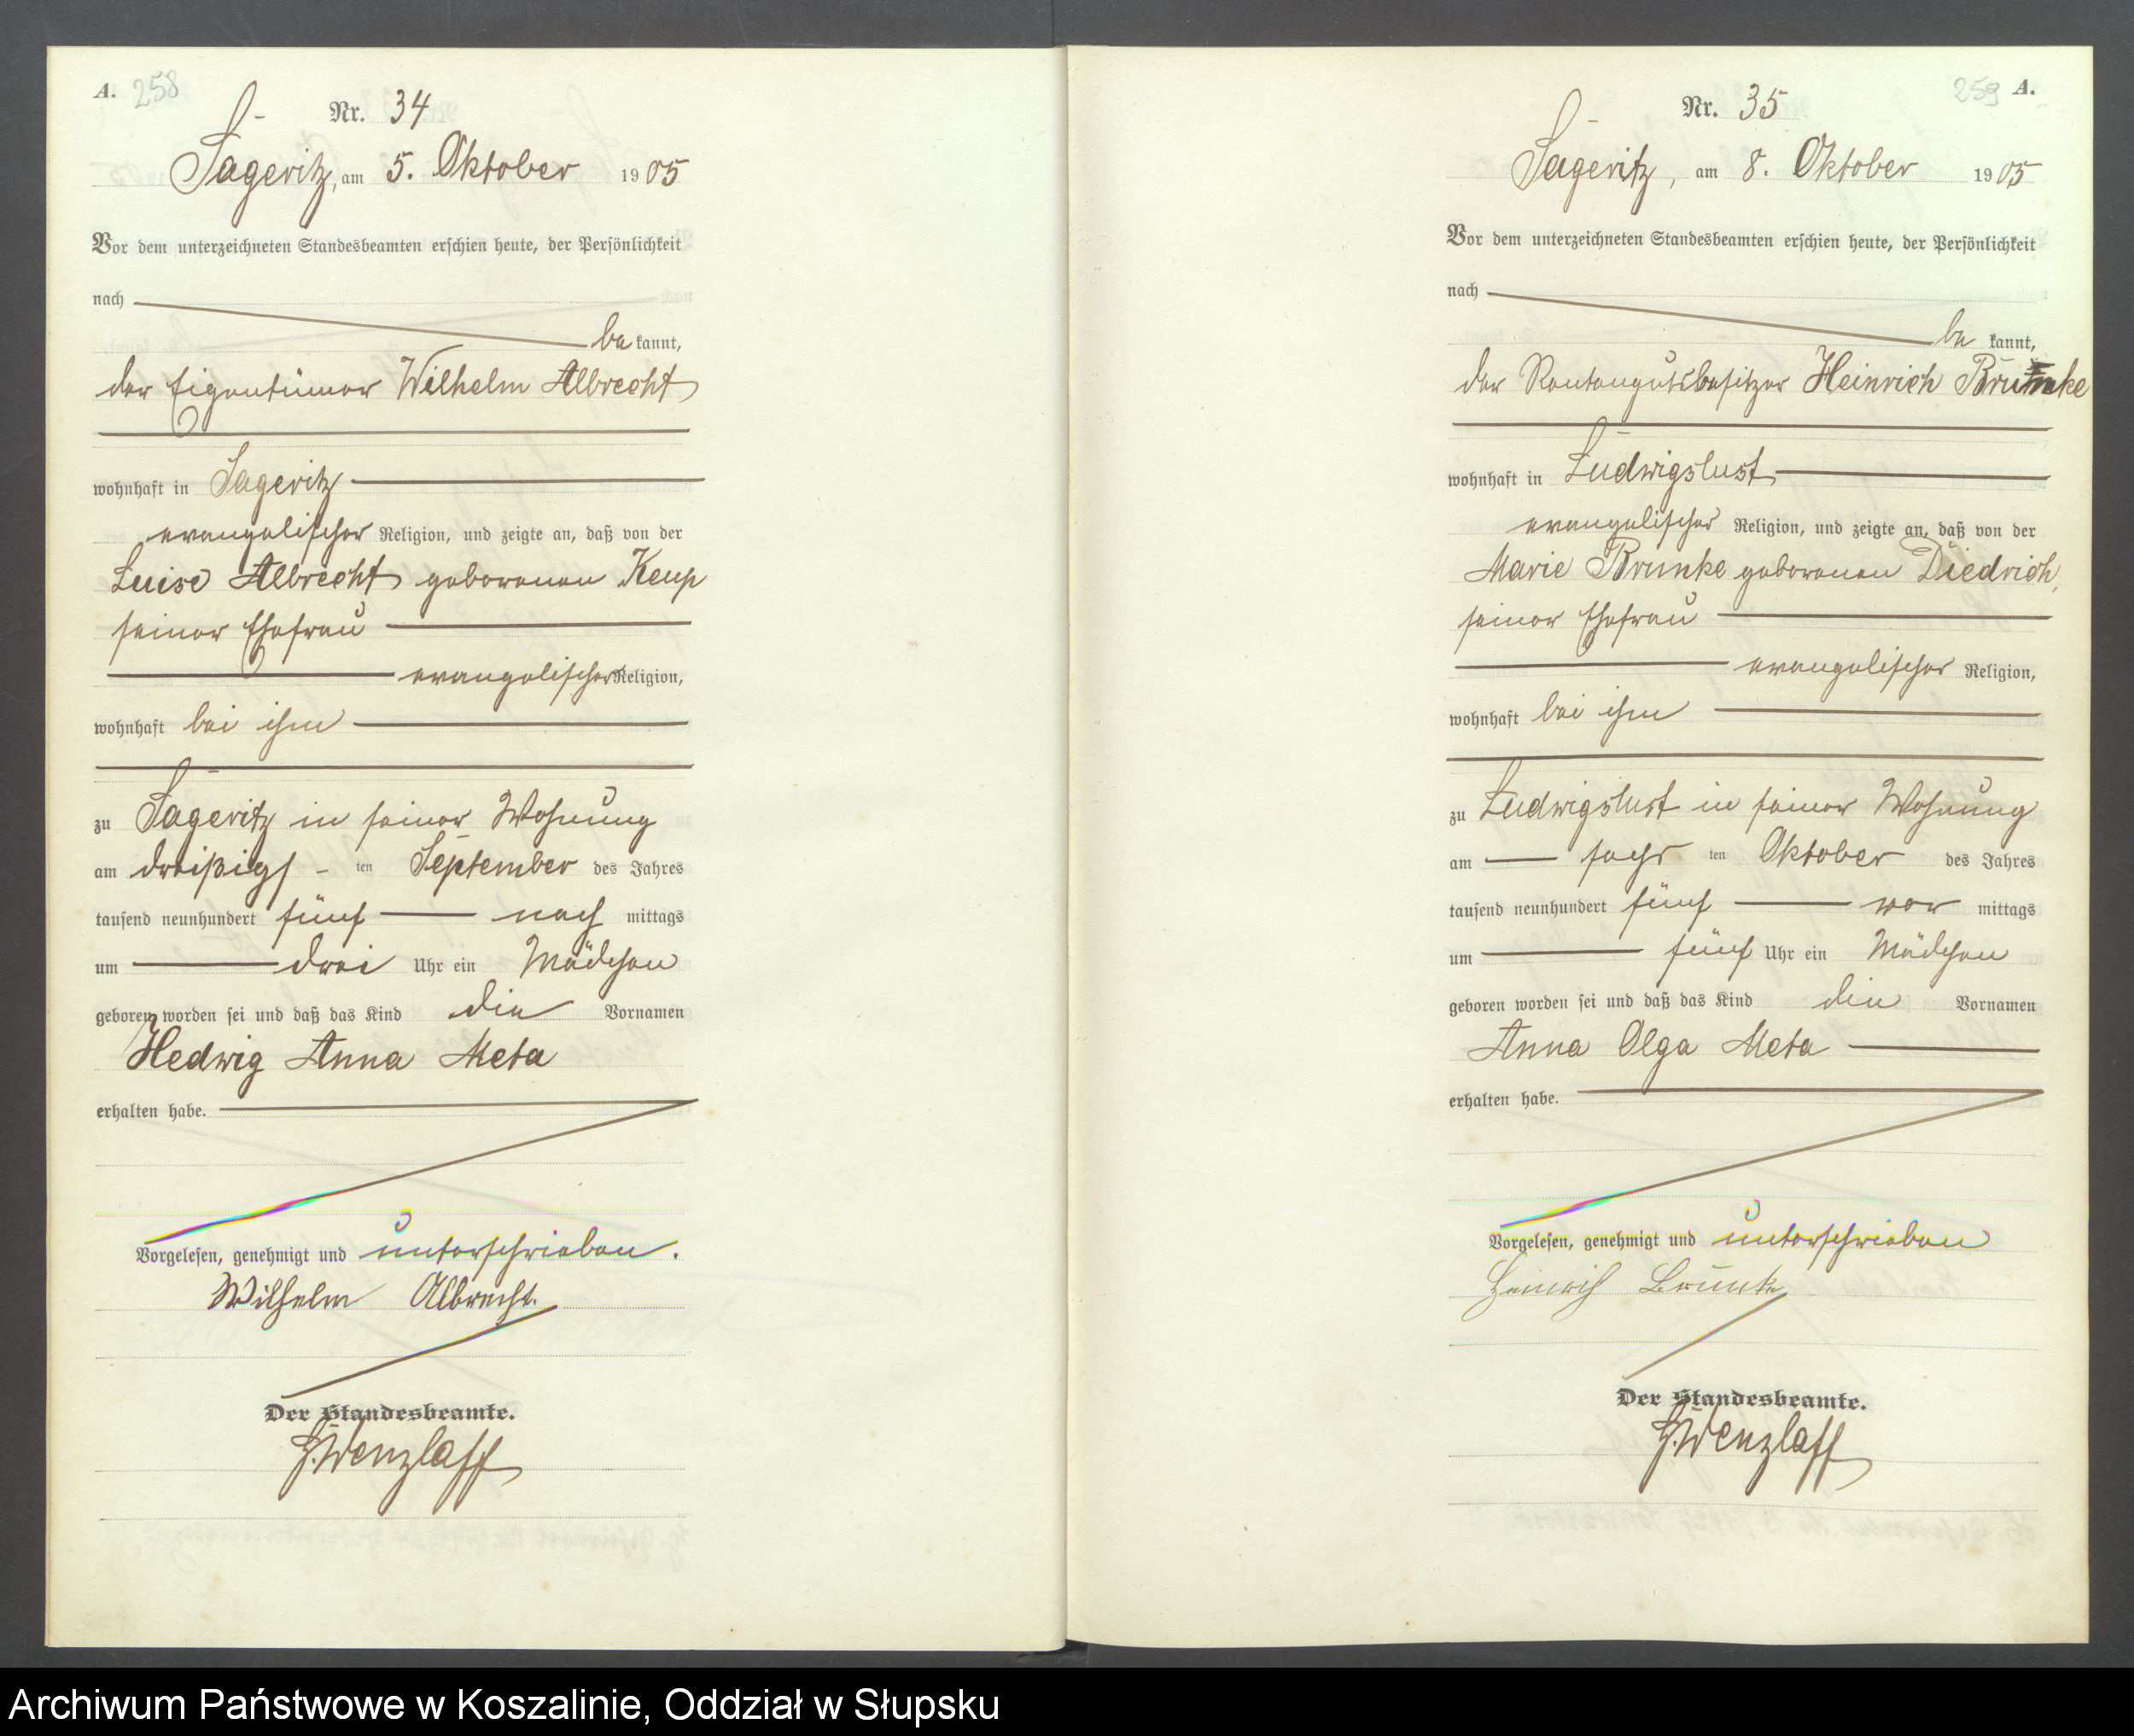 A. 258
Nr. 34
Sageritz, am 5. Oktober 1905
Vor dem unterzeichneten Standesbeamten erschien heute, der Persönlichkeit
nach
be kannt,
der Eigentümer Wilhelm Albrecht
wohnhaft in Sageritz
evangelischer Religion, und zeigte an, daß von der
Luise Albrecht geborenen Keup
seiner Ehefrau
evangelischer Religion,
wohnhaft bei ihm
zu Sageritz in seiner Wohnung
am dreißigs ten September des Jahres
tausend neunhundert fünf nach mittags
um drei Uhr ein Mädchen
geboren worden sei und daß das Kind die Vornamen
Hedwig Anna Meta
erhalten habe.
Vorgelesen, genehmigt und unterschrieben.
Wilhelm Albrecht.
Der Standesbeamte.
Wenzlaff
259 A.
Nr. 35
Sageritz, am 8. Oktober 1905
Vor dem unterzeichneten Standesbeamten erschien heute, der Persönlichkeit
nach
be kannt,
der Rentengutsbesitzer Heinrich Brunke
wohnhaft in Ludwigslust
evangelischer Religion, und zeigte an, daß von der
Marie Brunke geborenen Diedrich,
seiner Ehefrau
evangelischer Religion,
wohnhaft bei ihm
zu Ludwigslust in seiner Wohnung
am sechs ten Oktober des Jahres
tausend neunhundert fünf vor mittags
um fünf Uhr ein Mädchen
geboren worden sei und daß das Kind die Vornamen
Anna Olga Meta
erhalten habe.
Vorgelesen, genehmigt und unterschrieben
Heinrich Brunk
Der Standesbeamte.
Wenzlaff
Archiwum Państwowe w Koszalinie, Oddział w Słupsku